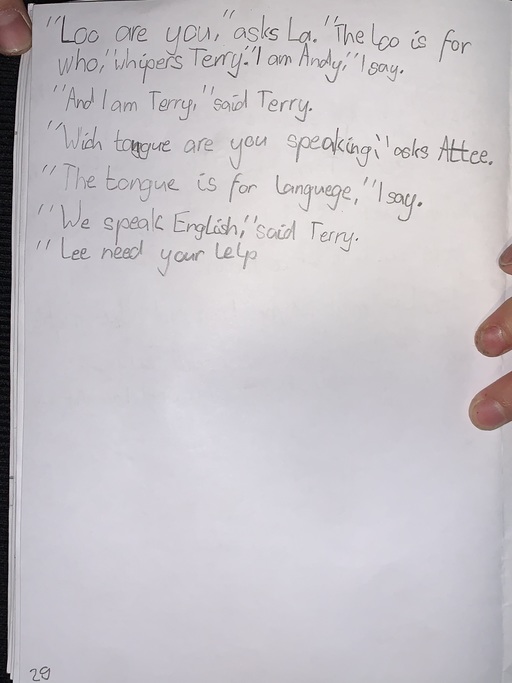 "Loo are you," asks La. "The Loo is for
who," whipers Terry. "I am Andy," I say.
"And I am Terry," said Terry.
"Wich tongue are you speaking," asks Attee.
"The tongue is for languege," I say.
"We speak English," said Terry.
"Lee need your Lelp
29